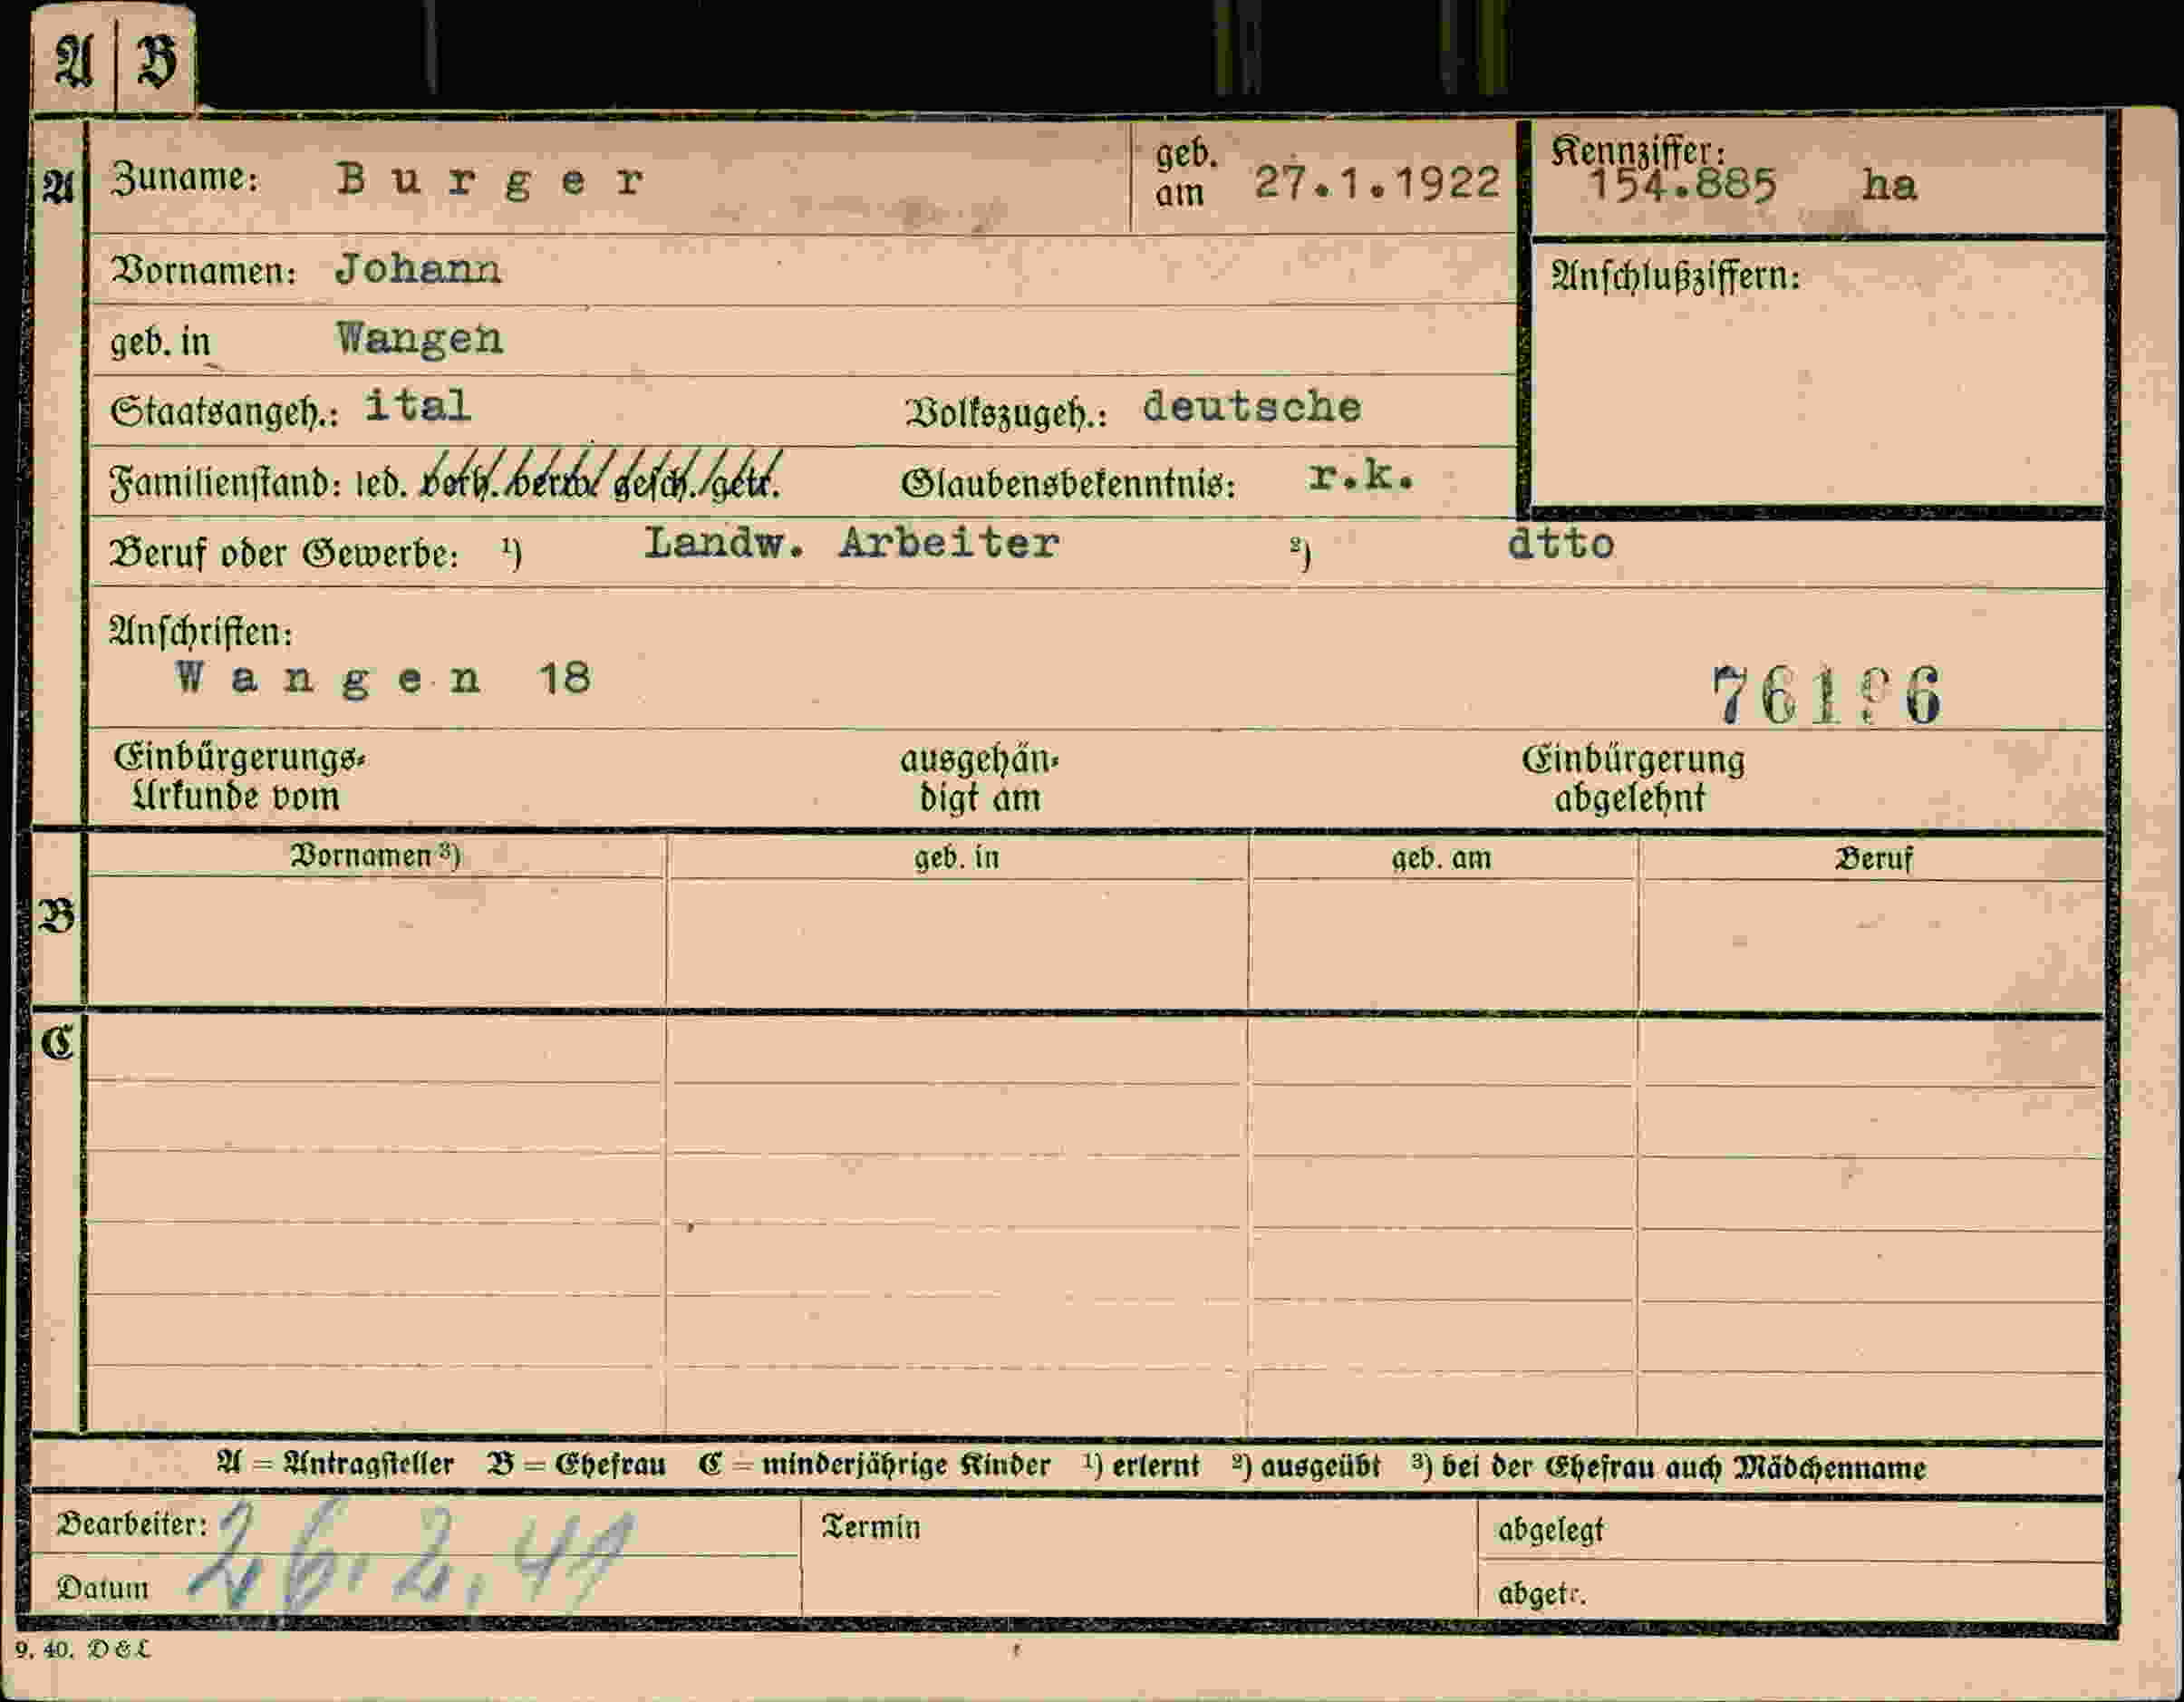 A | B
A
Zuname: Burger geb. am 27.1.1922
Kennziffer: 154.885 ha
Vornamen: Johann
Anschlußziffern:
geb. in Wangen
Staatsangeh.: ital Volkszugeh.: deutsche
Familienstand: led. verh. verw. gesch. getr. Glaubensbekenntnis: r.k.
Beruf oder Gewerbe: ¹) Landw. Arbeiter ²) dtto
Anschriften:
Wangen 18
Einbürgerungs-
Urkunde vom
ausgehän-
digt am
Einbürgerung
abgelehnt
Vornamen ³) geb. in geb. am Beruf
B
C
A = Antragsteller B = Ehefrau C = minderjährige Kinder ¹) erlernt ²) ausgeübt ³) bei der Ehefrau auch Mädchenname
Bearbeiter: Termin abgelegt
Datum 26.2.41 abgetr.
9. 40. D & L